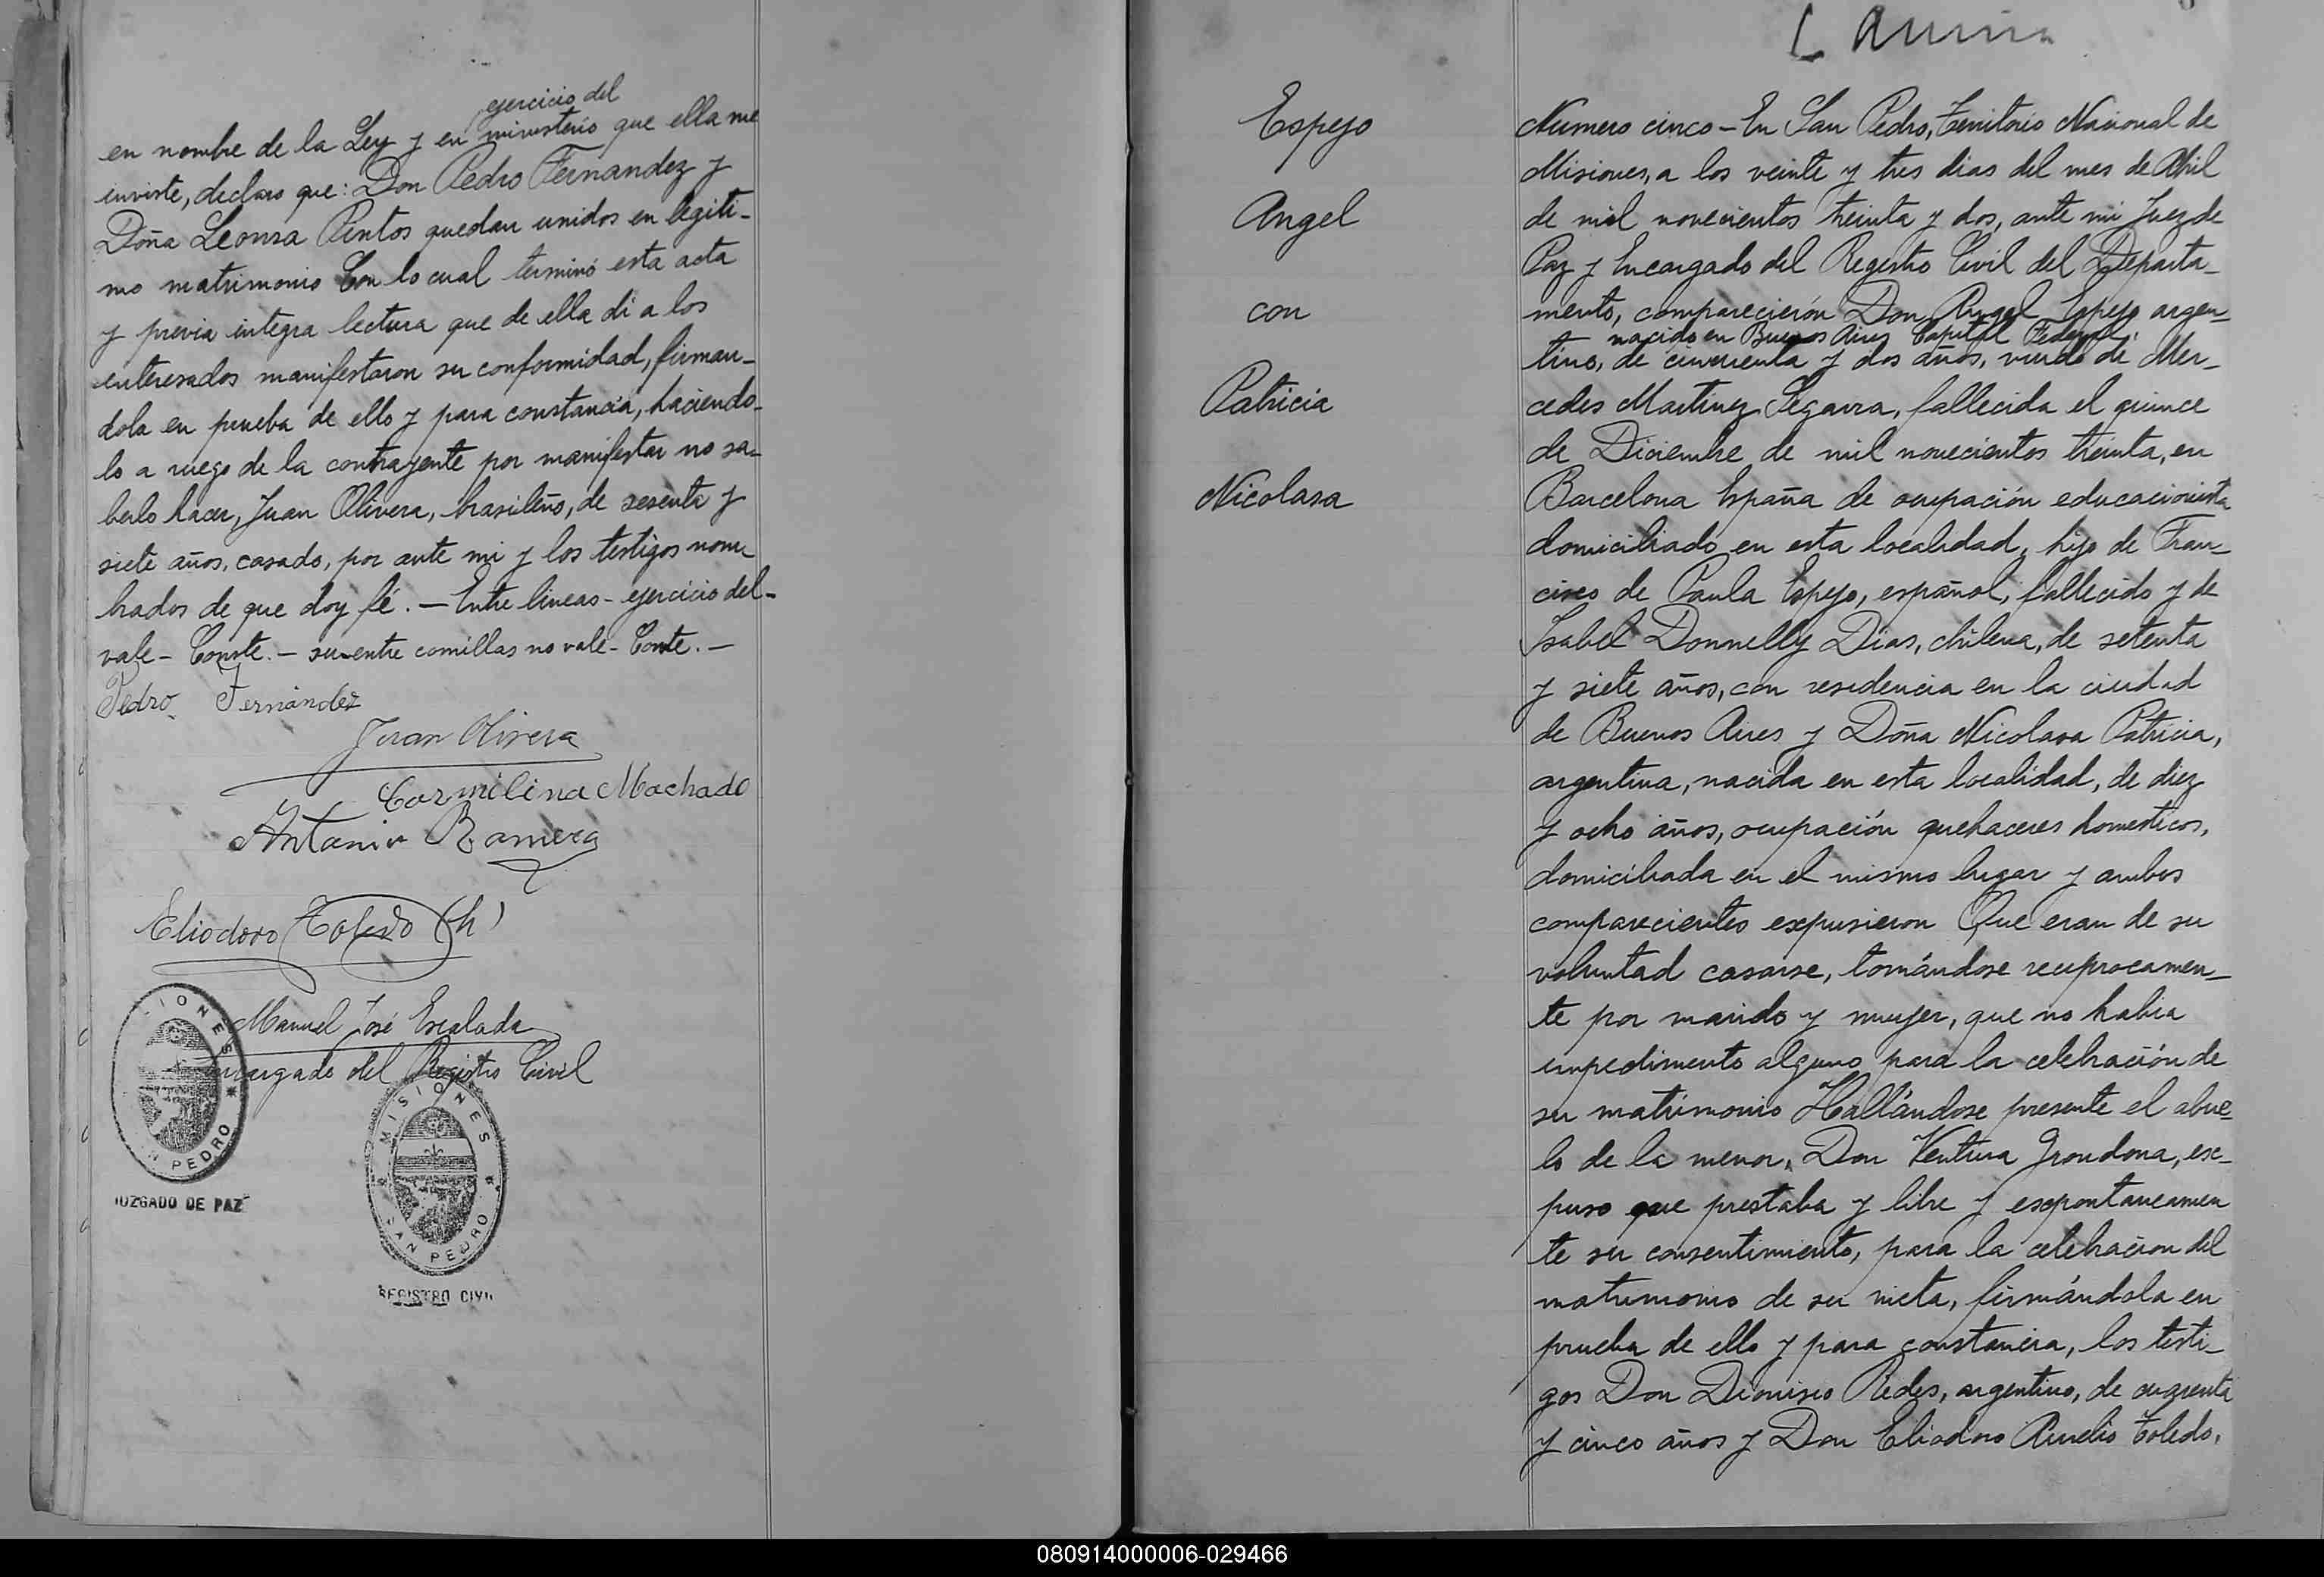 ejercicio del
en nombre de la Ley y en ministerio que ella me
inviste, declaro que: Don Pedro Fernandez y
Doña Leonra Pintos quedan unidos en legiti-
mo matrimonio Con lo cual terminó esta acta
y previa integra lectura que de ella di a los
interesados manifestaron su conformidad, firman-
dola en prueba de ello y para constancia, haciendo-
lo a ruego de la contrayente por manifestar no sa-
berlo hacer, Juan Olivera, brasileño, de sesenta y
siete años, casado, por ante mi y los testigos nom-
brados de que doy fé. — Entre lineas - ejercicio del -
vale - Conste. — su entre comillas no vale - Conste. —
Pedro Fernández
Juan Olivera
Carmilina Machado
Antonio Ramera
Eliodoro Toledo (h)
Manuel José Escalada
encargado del Registro Civil
MISIONES
SAN PEDRO
JUZGADO DE PAZ
MISIONES
SAN PEDRO
REGISTRO CIVIL
Espejo
Angel
con
Patricia
Nicolasa
Numero cinco - En San Pedro, Territorio Nacional de
Misiones, a los veinte y tres dias del mes de Abril
de mil novecientos treinta y dos, ante mi Juez de
Paz y Encargado del Registro Civil del Departa-
mento, comparecierón Don Angel Espejo argen-
nacido en Buenos Aires Capital Federal,
tino, de cincuenta y dos años, viudo de Mer-
cedes Martinez Segarra, fallecida el quince
de Diciembre de mil novecientos treinta, en
Barcelona España de ocupación educacionista
domiciliado en esta localidad, hijo de Fran-
cisco de Paula Espejo, español, fallecido y de
Isabel Donnelly Dias, chilena, de setenta
y siete años, con residencia en la ciudad
de Buenos Aires y Doña Nicolasa Patricia,
argentina, nacida en esta localidad, de diez
y ocho años, ocupación quehaceres domesticos,
domiciliada en el mismo lugar y ambos
comparecientes expusieron Que eran de su
voluntad casarse, tomándose reciprocamen-
te por marido y mujer, que no habia
impedimento alguno para la celebración de
su matrimonio Hallándose presente el abue-
lo de la menor, Don Ventura Grondona, ex-
puso que prestaba y libre y expontaneamen
te su consentimiento, para la celebracion del
matrimonio de su nieta, firmándola en
prueba de ello y para constancia, los testi-
gos Don Dionisio Redes, argentino, de cuarenta
y cinco años y Don Eliodoro Aurelio Toledo,
080914000006-029466